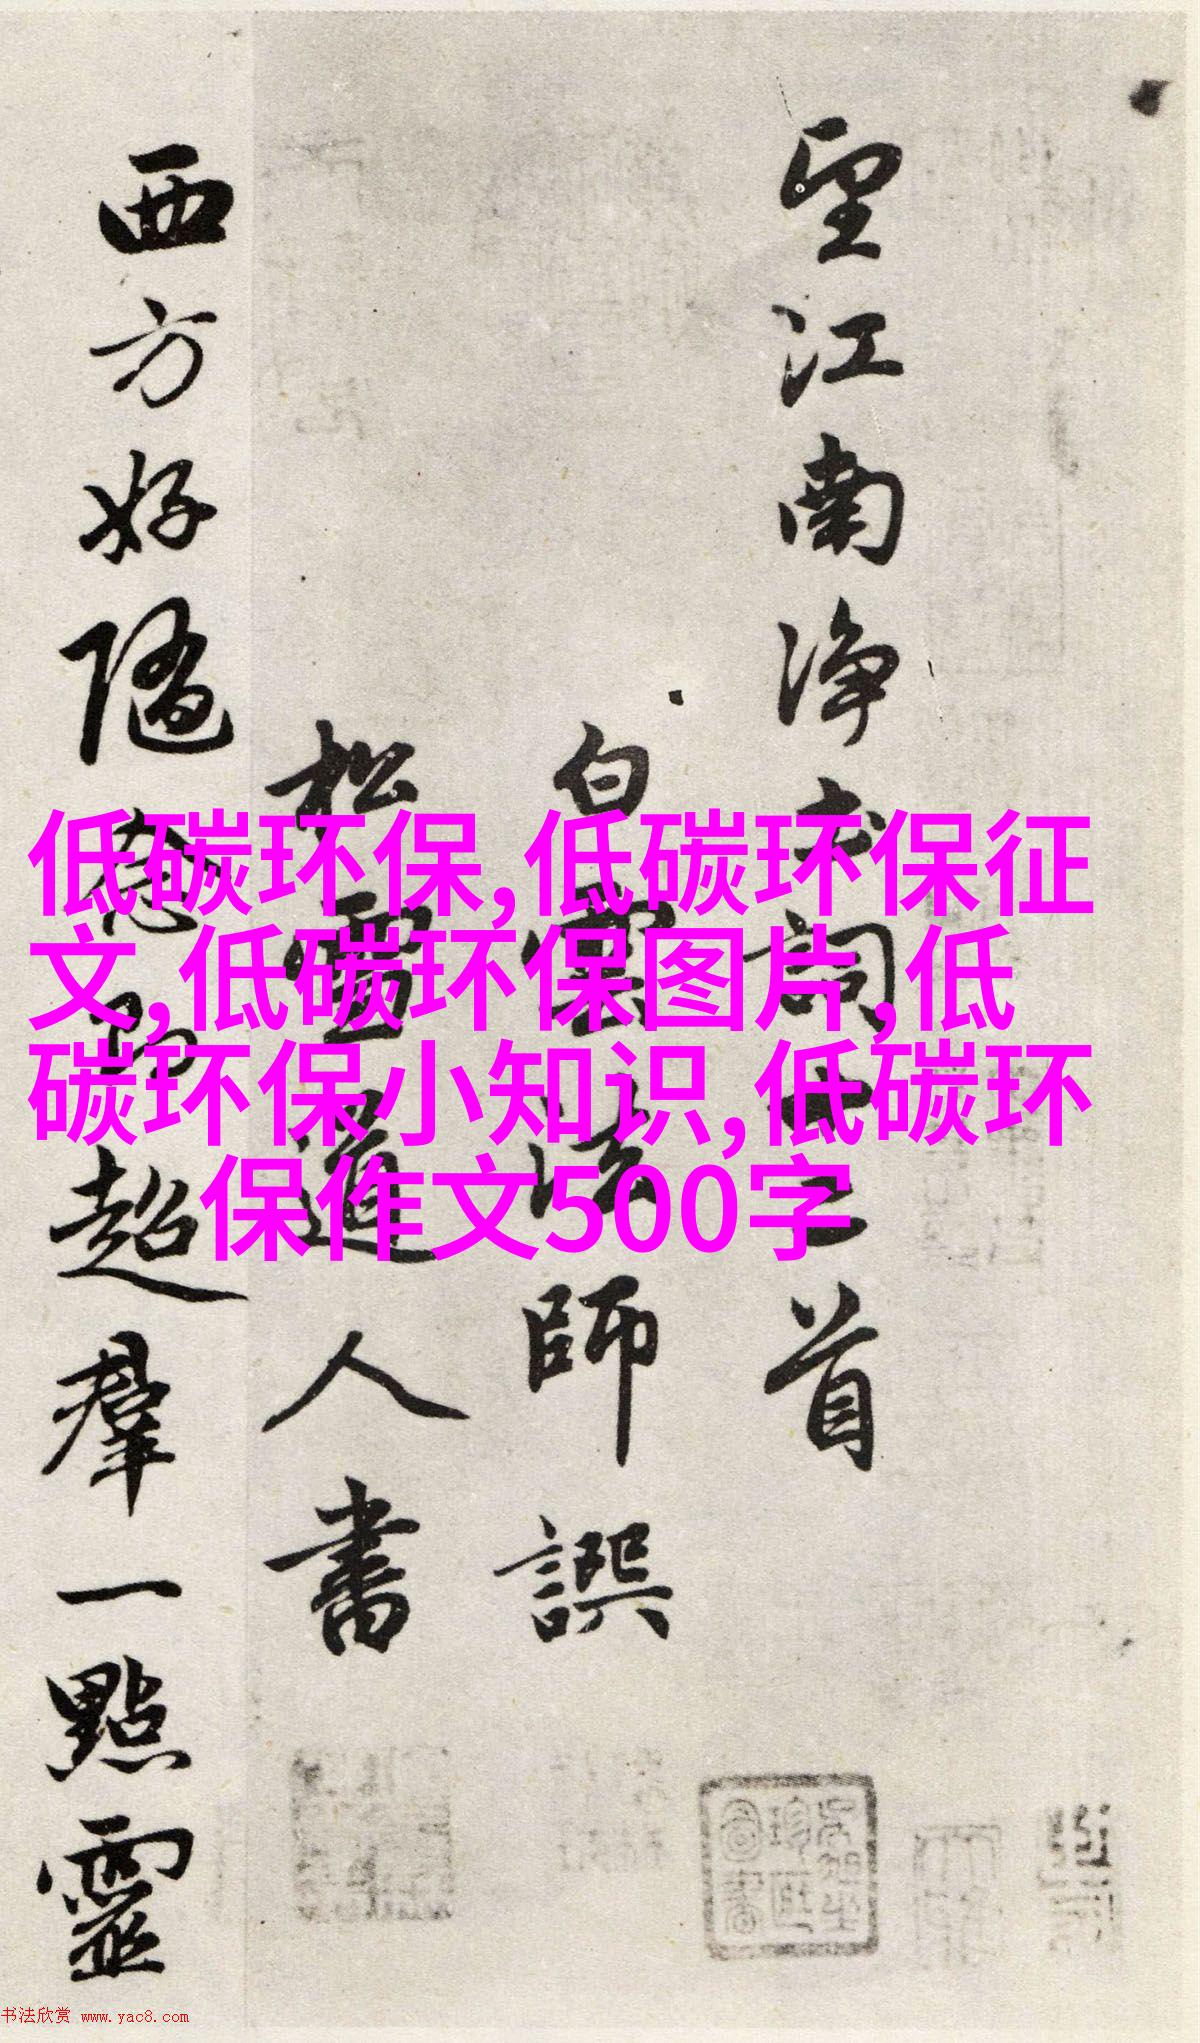 望江南净土詞十二首
白雲法師譔
松雪道人書
西方好隨念即超羣一點靈
低碳环保,低碳环保征
文,低碳环保图片,低
碳环保小知识,低碳环
保作文500字
书法欣赏 www.yac8.com